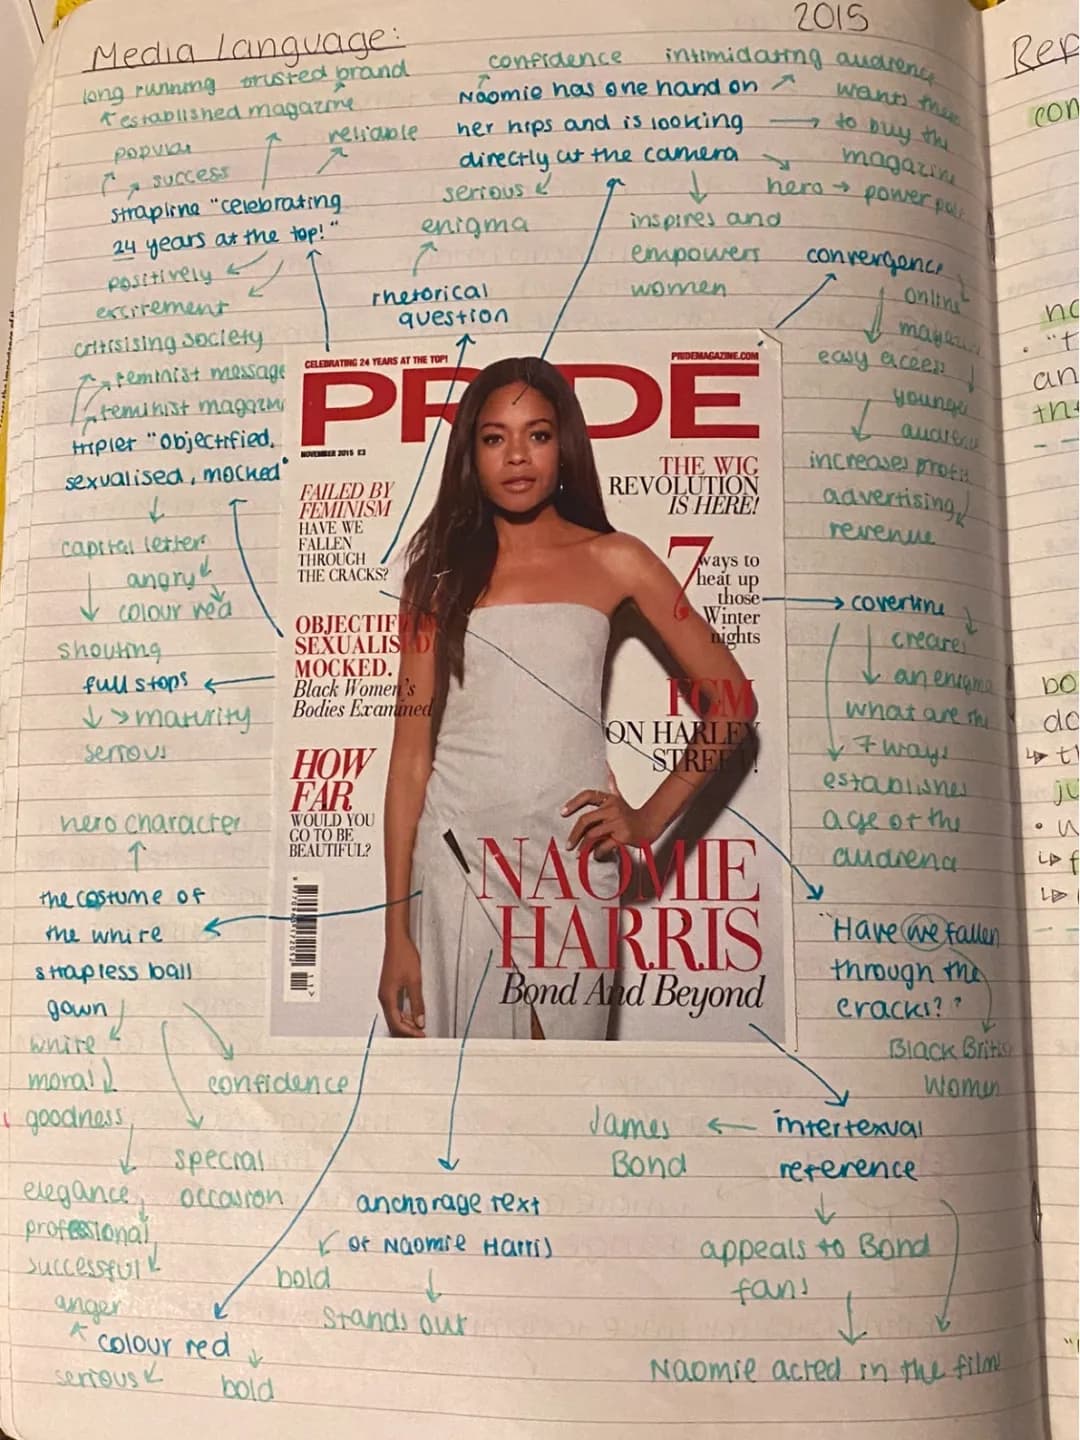 2015
Media Language:
long running trusted brand
established magazine
popular
reliable
success
strapline "celebrating
24 years at the top!"
positively
excitement
confidence intimidating audience
Naomie has one hand on
her hips and is looking
directly at the camera
wants them
to buy the
magazine
hero → power
serious
enigma
inspires and
empowers
women
rhetorical
question
convergence
online
easy access
younger
audience
increases profit
advertising
revenue
critisising society
feminist message
feminist magazine
tripler "objectified,
sexualised, mocked"
capital letters
angry
colour red
shouting
full stops
maturity
serious
CELEBRATING 24 YEARS AT THE TOP!
PRIDEMAGAZINE.COM
PRIDE
NOVEMBER 2015 £3
FAILED BY
FEMINISM
HAVE WE
FALLEN
THROUGH
THE CRACKS?
OBJECTIFIED
SEXUALISED
MOCKED.
Black Women's
Bodies Examined
HOW
FAR
WOULD YOU
GO TO BE
BEAUTIFUL?
THE WIG
REVOLUTION
IS HERE!
7 ways to
heat up
those
Winter
nights
FGM
ON HARLEY
STREET!
NAOMIE
HARRIS
Bond And Beyond
coverline
creates
an enigma
what are the
7 ways
establishes
age of the
audience
"Have we fallen
through the
cracks?"
Black British
Women
hero character
the costume of
the white
strapless ball
gown
white
moral
goodness
elegance
professional
successful
confidence
special
occasion
anger
colour red
serious
bold
anchorage text
of Naomie Harris
bold
stands out
James
Bond
intertexual
reference
appeals to Bond
fans
Naomie acted in the film
Rep
con